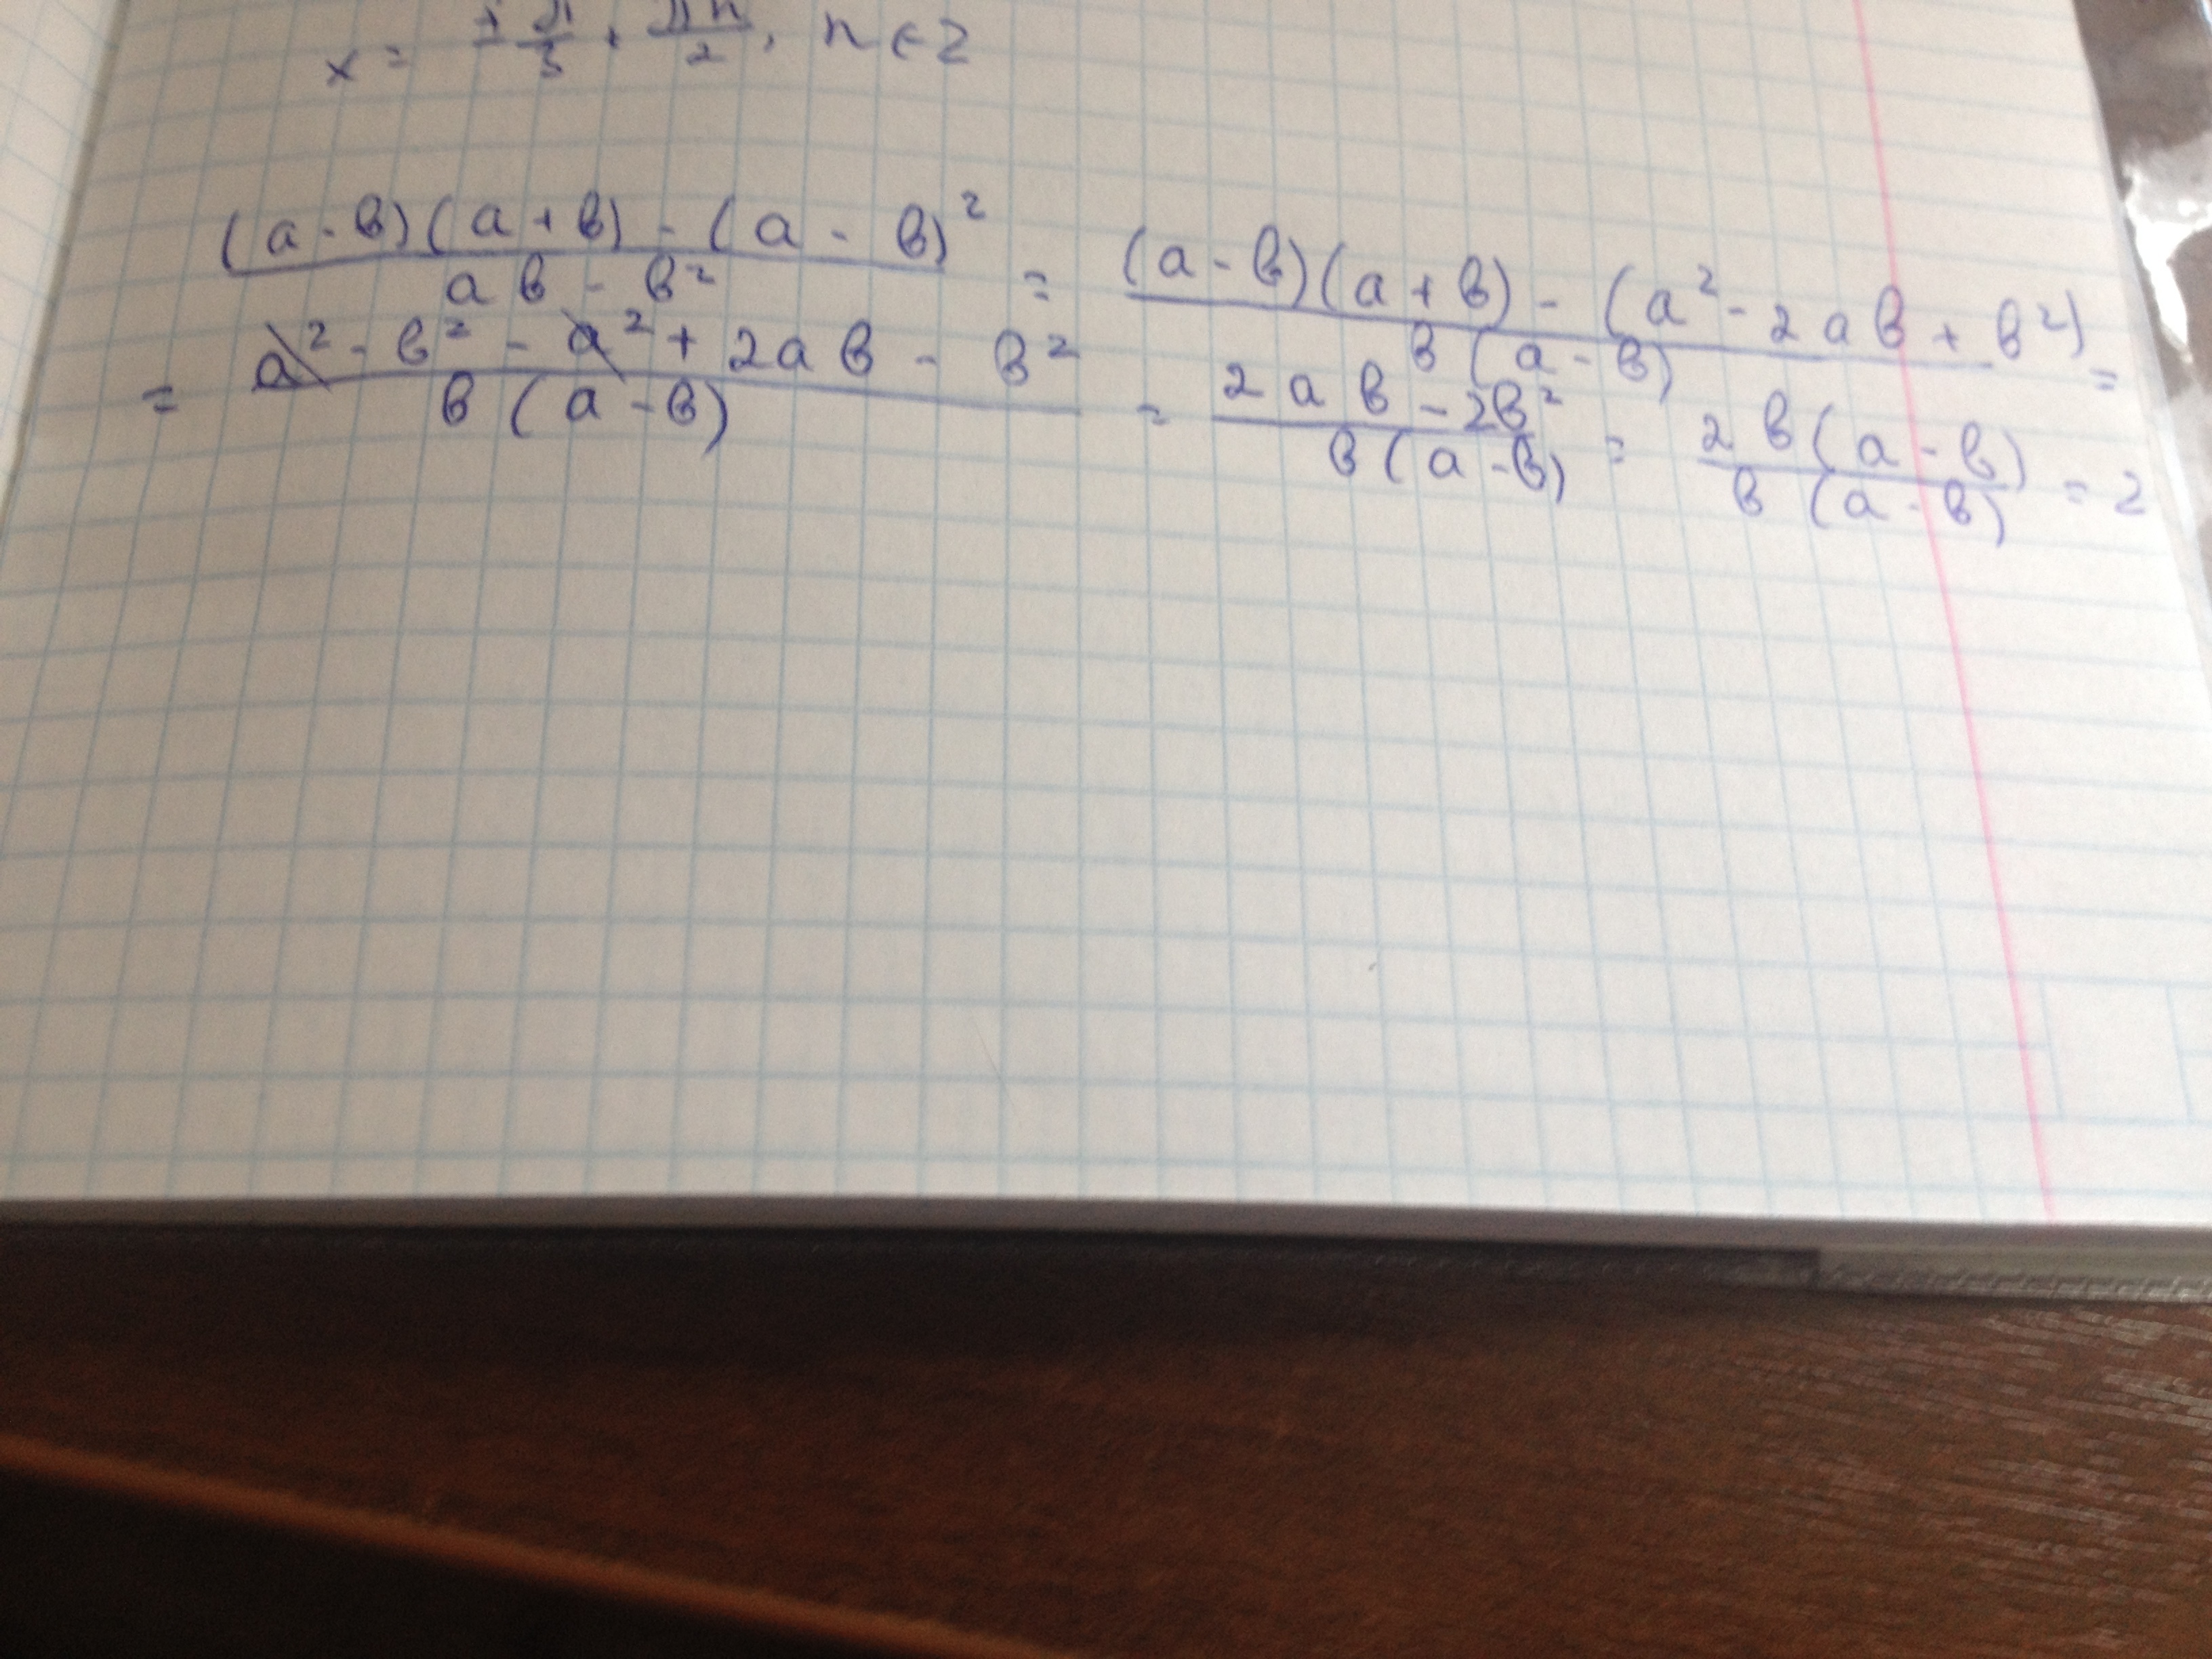 x = ± π/3 + πn/2, n ∈ Z
(a - b)(a + b) - (a - b)² / ab - b² = (a - b)(a + b) - (a² - 2ab + b²) / b(a - b) =
= a² - b² - a² + 2ab - b² / b(a - b) = 2ab - 2b² / b(a - b) = 2b(a - b) / b(a - b) = 2